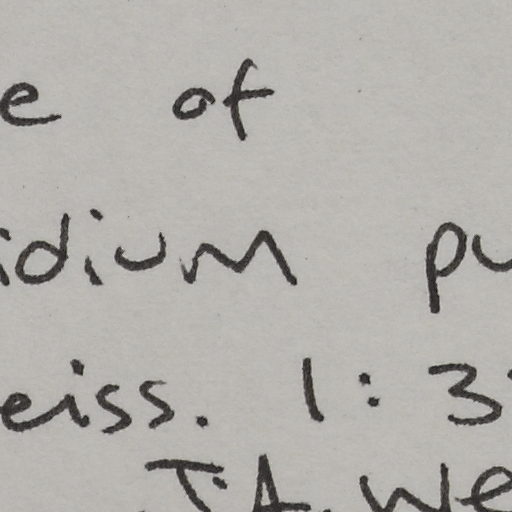 e of
idium pu
eiss. 1:3
J.A. We